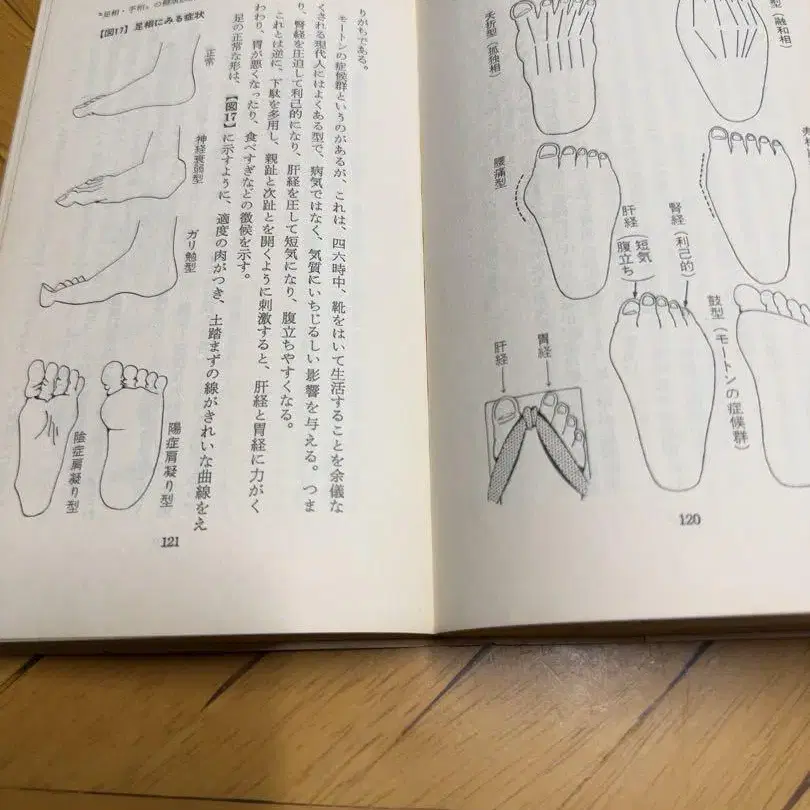 型（融和相）
夭折型（孤独相）
腰痛型
腎経（利己的）
肝経（短気 腹立ち）
鼓型（モートンの症候群）
胃経
肝経
120
りがちである。
モートンの症候群というのがあるが、これは、四六時中、靴をはいて生活することを余儀な
くされる現代人にはよくある型で、病気ではなく、気質にいちじるしい影響を与える。つま
り、腎経を圧迫して利己的になり、肝経を圧して短気になり、腹立ちやすくなる。
これとは逆に、下駄を多用し、親趾と次趾とを開くように刺激すると、肝経と胃経に力がく
わわり、胃が悪くなったり、食べすぎなどの徴候を示す。
足の正常な形は、【図17】に示すように、適度の肉がつき、土踏まずの線がきれいな曲線をえ
"足相・手相"の健康
【図17】足相にみる症状
正常
神経衰弱型
ガリ勉型
陽症肩凝り型
陰症肩凝り型
121